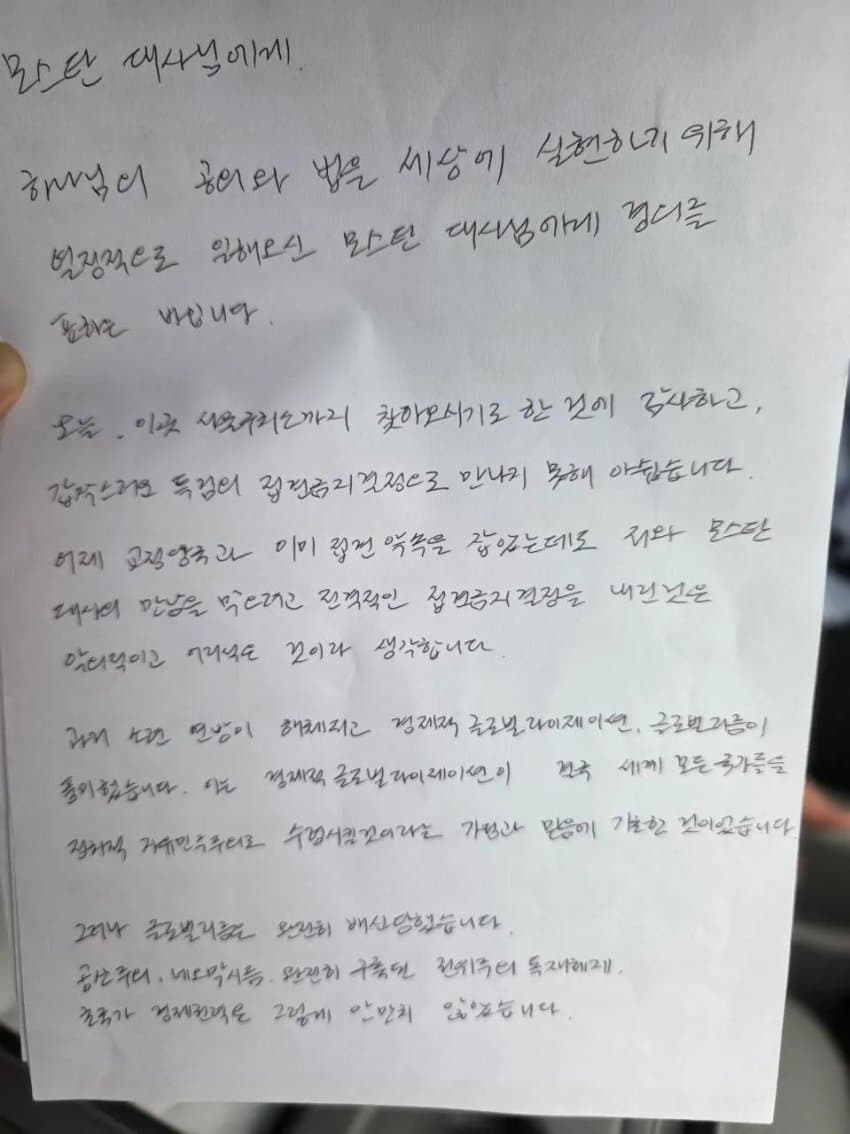 모스탄 대사님에게.
하나님의 공의와 법을 세상에 실현하기 위해
열정적으로 일해오신 모스탄 대사님에게 경의를
표하는 바입니다.
오늘, 이곳 서울구치소까지 찾아오시기로 한 것에 감사하고,
갑작스러운 특검의 접견금지결정으로 만나지 못해 아쉽습니다.
어제 교정당국과 이미 접견 약속을 잡았는데도 저와 모스탄
대사의 만남을 막으려고 전격적인 접견금지결정을 내린것은
악의적이고 어리석은 것이라 생각합니다.
과거 소련 연방이 해체되고 경제적 글로벌라이제이션, 글로벌리즘이
풍미했습니다. 이는 경제적 글로벌라이제이션이 결국 세계 모든 국가들을
정치적 자유민주주의로 수렴시킬것이라는 가정과 믿음에 기초한 것이었습니다.
그러나 글로벌리즘은 완전히 배신당했습니다.
공산주의, 네오막시즘, 완전히 구축된 권위주의 독재체제,
초국가 경제권력은 그렇게 만만치 않았습니다.